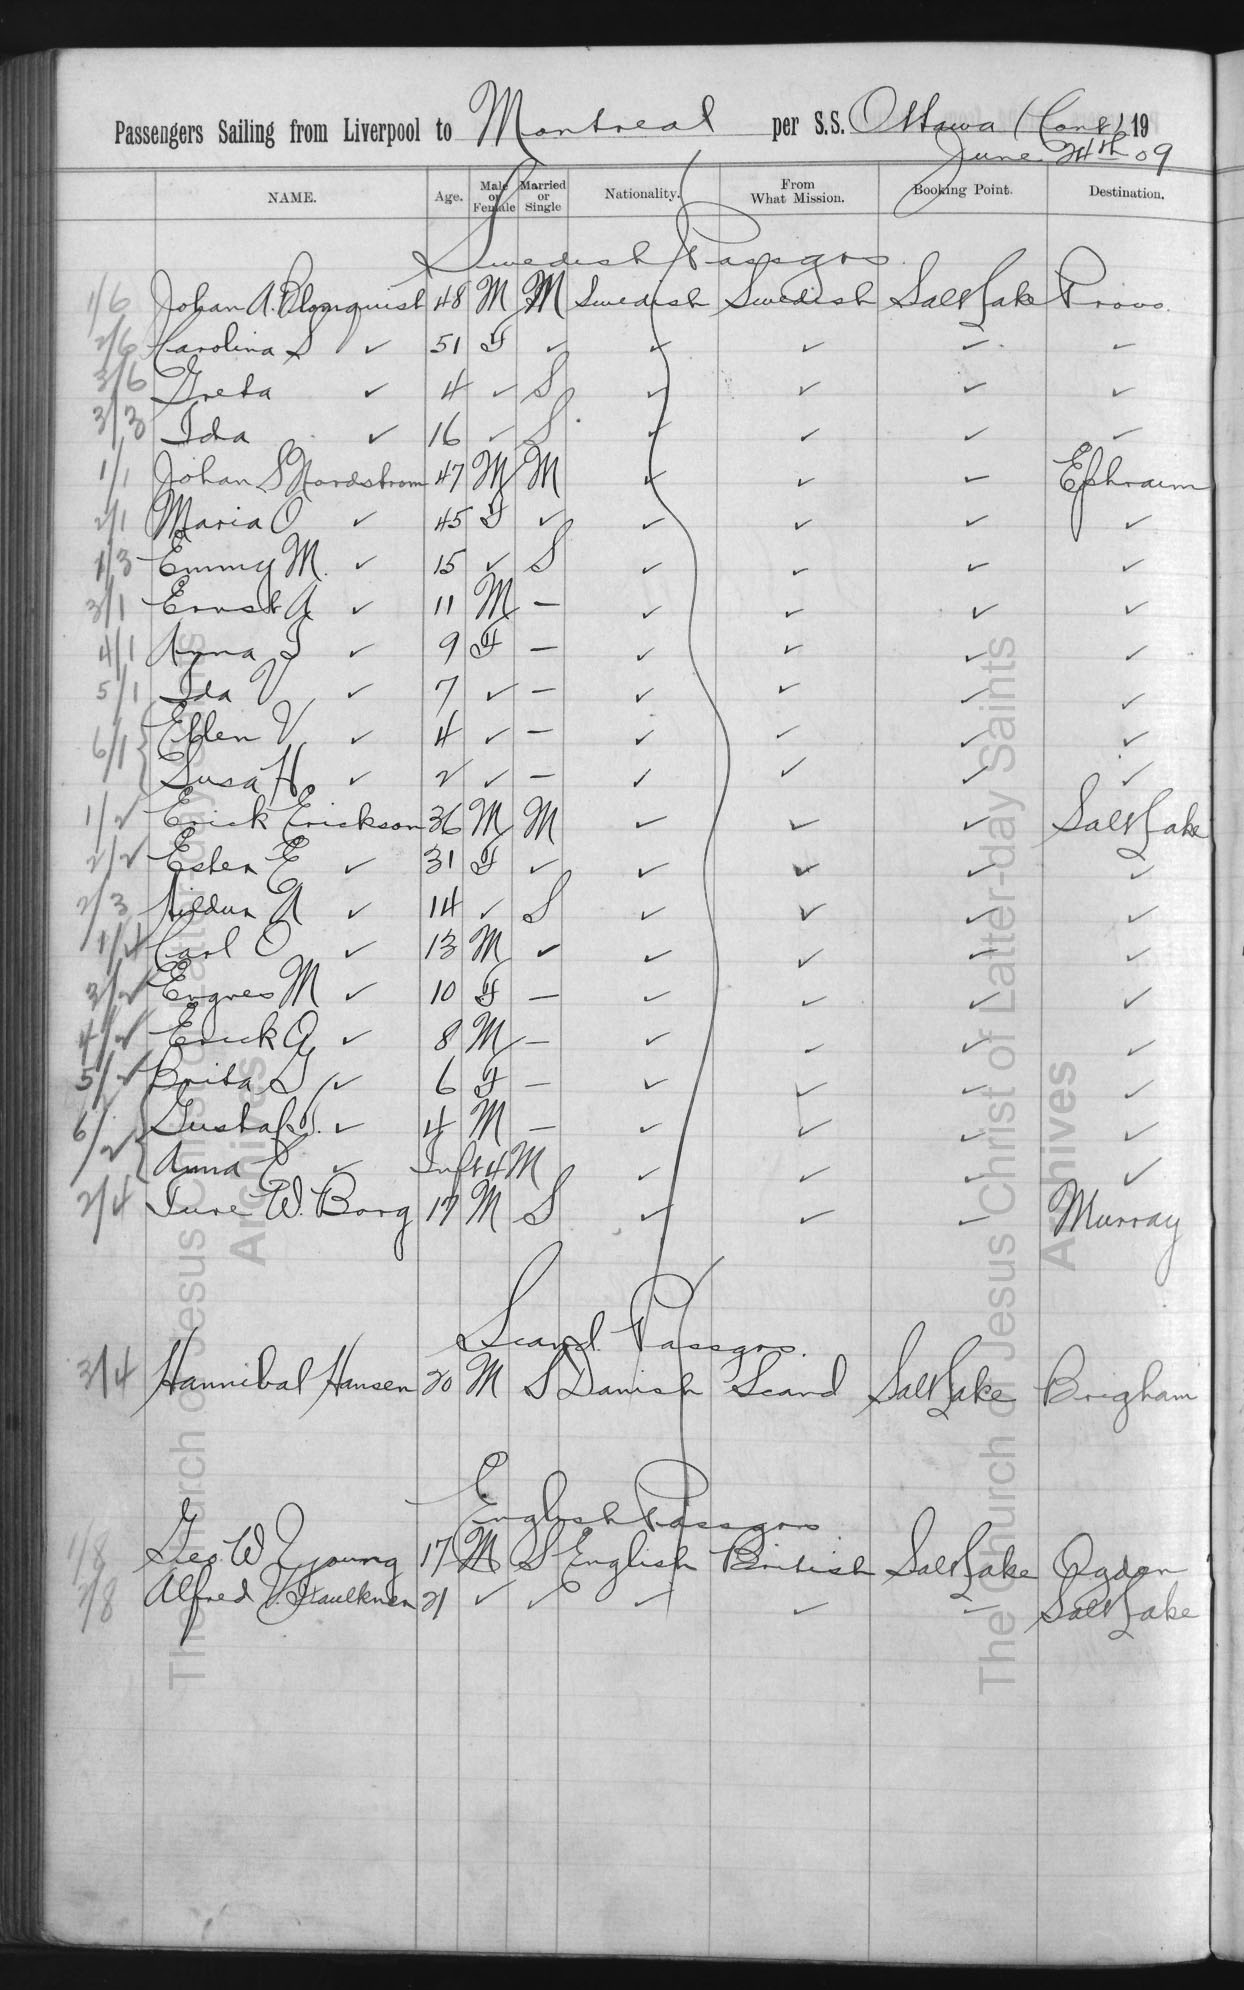 Passengers Sailing from Liverpool to Montreal per S.S. Ottawa (Cont) 19
June 24th 09
NAME. Age. Male or Female Married or Single Nationality. From What Mission. Booking Point. Destination.
Swedish Passgrs.
1/6 Johan A. Blomquist 48 M M Swedish Swedish Salt Lake Provo.
2/6 Carolina S ✓ 51 F ✓ ✓ ✓ ✓ ✓
3/6 Greta ✓ 4 ✓ S ✓ ✓ ✓ ✓
3/3 Ida ✓ 16 ✓ S ✓ ✓ ✓ ✓
1/1 Johan S Nordstrom 47 M M ✓ ✓ ✓ Ephraim
2/1 Maria O ✓ 45 F ✓ ✓ ✓ ✓ ✓
1/3 Emmy M. ✓ 15 ✓ S ✓ ✓ ✓ ✓
3/1 Ernst A ✓ 11 M — ✓ ✓ ✓ ✓
4/1 Anna S ✓ 9 F — ✓ ✓ ✓ ✓
5/1 Ida V ✓ 7 ✓ — ✓ ✓ ✓ ✓
6/1 { Ellen V ✓ 4 ✓ — ✓ ✓ ✓ ✓
Susa H. ✓ 2 ✓ — ✓ ✓ ✓ ✓
1/2 Erick Erickson 36 M M ✓ ✓ ✓ Salt Lake
2/2 Ester E ✓ 31 F ✓ ✓ ✓ ✓ ✓
2/3 Hildur A ✓ 14 ✓ S ✓ ✓ ✓ ✓
1/4 Carl O ✓ 13 M ✓ ✓ ✓ ✓ ✓
3/2 M ✓ 10 F — ✓ ✓ ✓ ✓
4/2 Erick A ✓ 8 M — ✓ ✓ ✓ ✓
5/2 Brita G ✓ 6 F — ✓ ✓ ✓ ✓
6/2 { Gustaf ✓ 4 M — ✓ ✓ ✓ ✓
Anna E ✓ Inft 4 M ✓ ✓ ✓ ✓
2/4 Ture W. Borg 17 M S ✓ ✓ ✓ Murray
Scand. Passgrs.
3/4 Hannibal Hansen 20 M S Danish Scand Salt Lake Brigham
English Passgrs
1/8 Geo. W Young 17 M S English British Salt Lake Ogden
2/8 Alfred V. Faulkner 21 ✓ ✓ ✓ ✓ ✓ Salt Lake
The Church of Jesus Christ of Latter-day Saints
Archives
The Church of Jesus Christ of Latter-day Saints
Archives